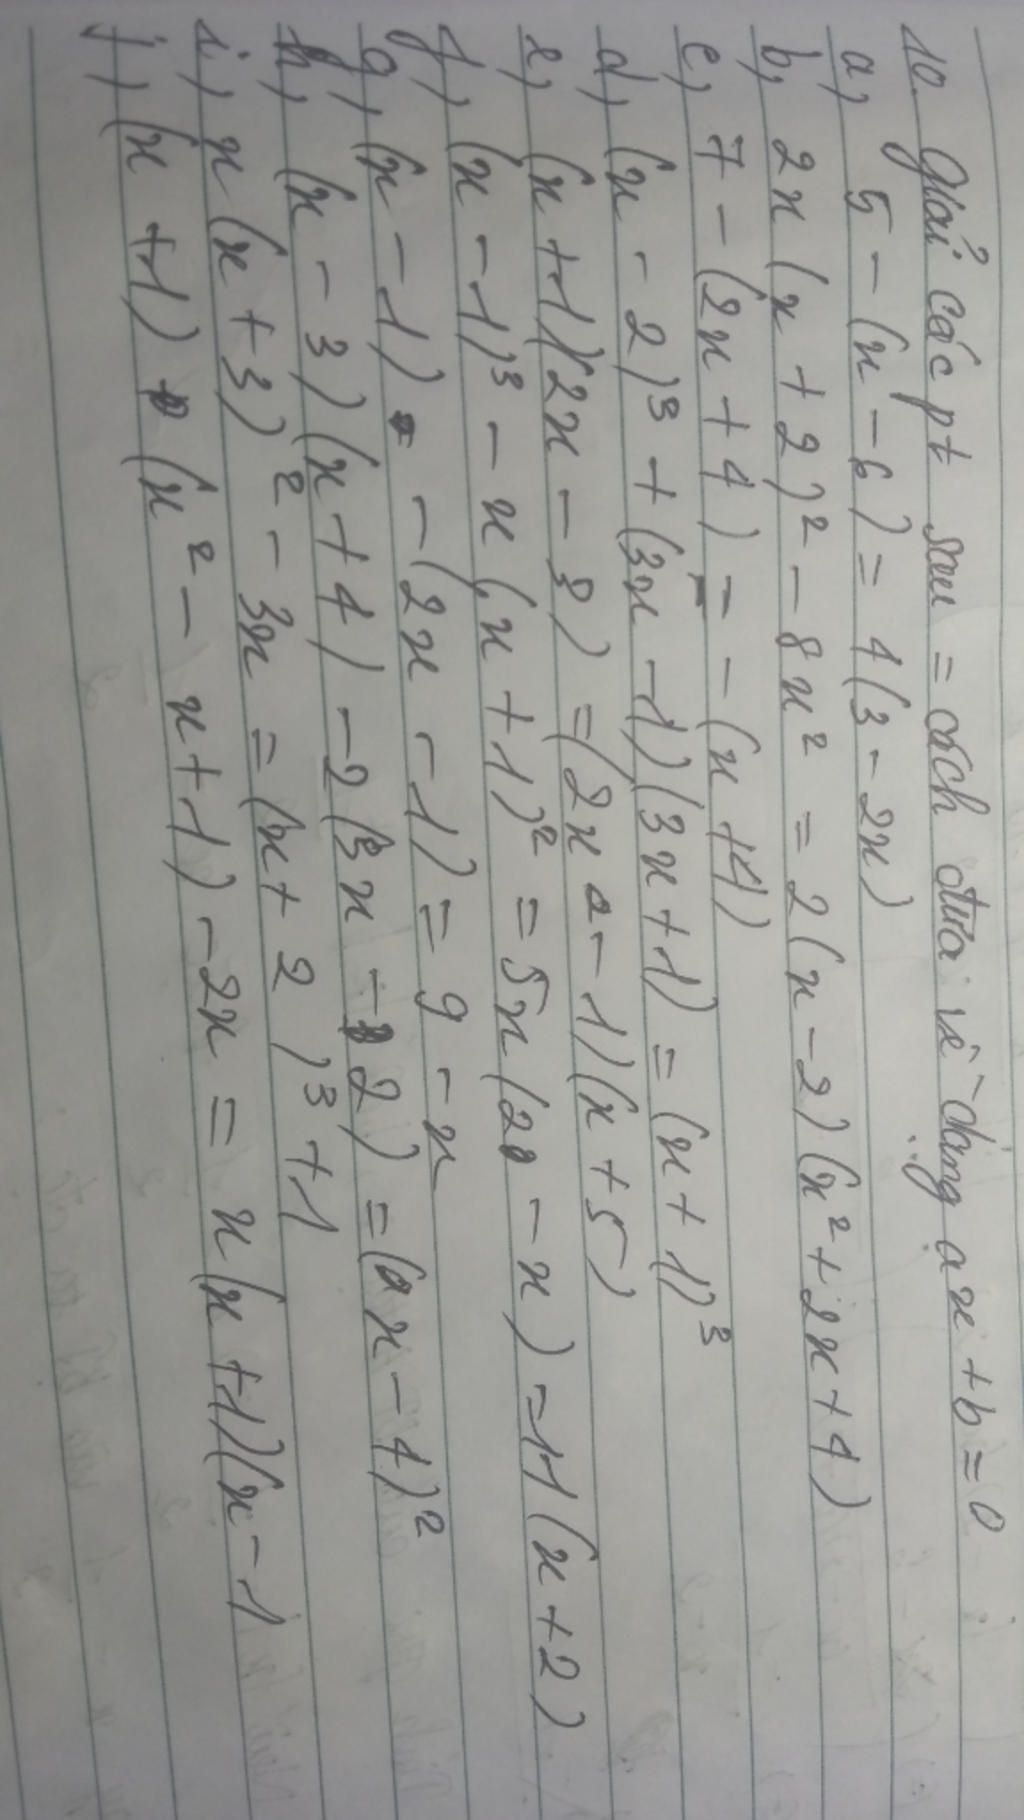 10. Giải các pt sau = cách đưa về dạng ax + b = 0
a, 5 - (x - 6) = 4(3 - 2x)
b, 2x (x + 2)² - 8x² = 2(x - 2)(x² + 2x + 4)
c, 7 - (2x + 4) = - (x + 4)
d, (x - 2)³ + (3x - 1)(3x + 1) = (x + 1)³
e, (x + 1)(2x - 3) = (2x - 1)(x + 5)
f, (x - 1)³ - x (x + 1)² = 5x (2 - x) - 11 (x + 2)
g, (x - 1) - (2x - 1) = 9 - x
h, (x - 3)(x + 4) - 2(3x - 2) = (x - 4)²
i, x (x + 3)² - 3x = (x + 2)³ + 1
j, (x + 1) (x² - x + 1) - 2x = x (x + 1)(x - 1